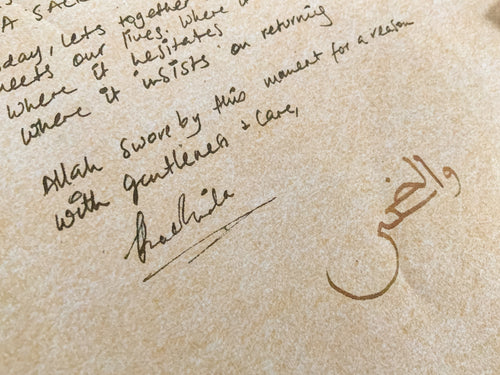 A
lets together
our lives. Where it
where it hesitates
where it insists on returning
Allah swore by this moment for a reason
with gentleness & care,
والضحى